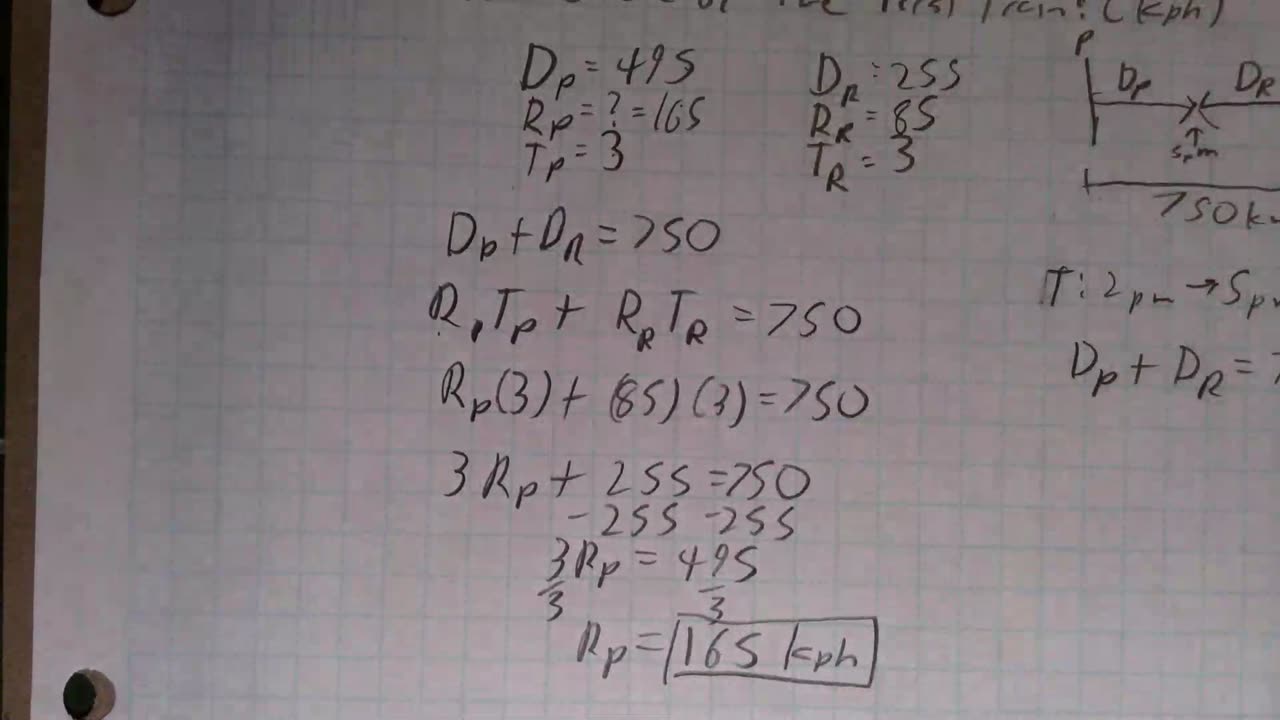 the first train? (kph)
Dp = 495
Rp = ? = 165
Tp = 3
DR = 255
RR = 85
TR = 3
P
Dp DR
5pm
750k
Dp + DR = 750
RpTp + RRTR = 750
Rp(3) + (85)(3) = 750
3Rp + 255 = 750
-255 -255
3Rp = 495
3 3
Rp = 165 kph
T: 2pm → 5p
Dp + DR = 7